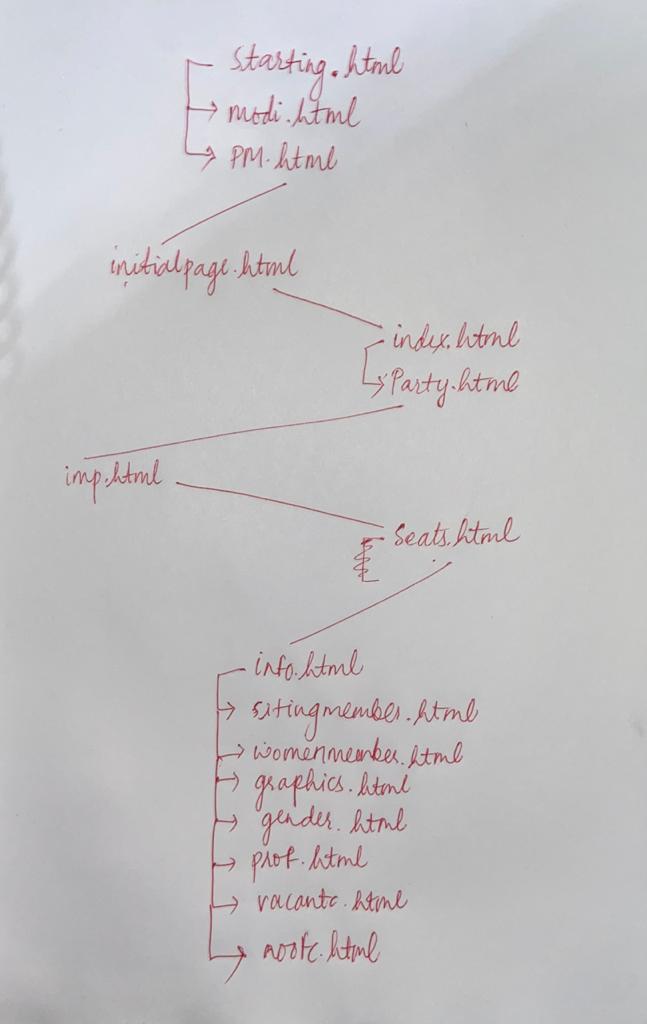 starting.html
modi.html
PM.html
initialpage.html
index.html
Party.html
imp.html
Seats.html
info.html
sitingmember.html
womenmember.html
graphics.html
gender.html
prof.html
vacantc.html